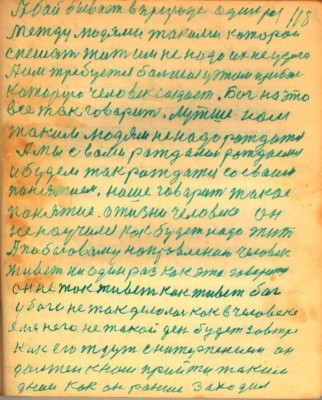 А бог бывает в природе один раз 118
Между людями такими которой
спешат жит им не надо их не удержа
А им требуется балшая утим прибыл
которую человек создает. Бог на это
все так говорит. Лутше нам
таким людям не надо рождатся
А мы с вами раждаем раждаемся
и будем так раждатся со своим
понятием. наше говорит такое
понятие. а жизни человека он
не научился как будет надо жит
А по боговому направлению человек
живет ни один раз как это говорит
он не так живет как живет бог
у бога не так делалос как в человека
для него не такой ден будет завтра
как его ждут с нитерпением он
должен к нам прийти таким
днем как он ранше заходил